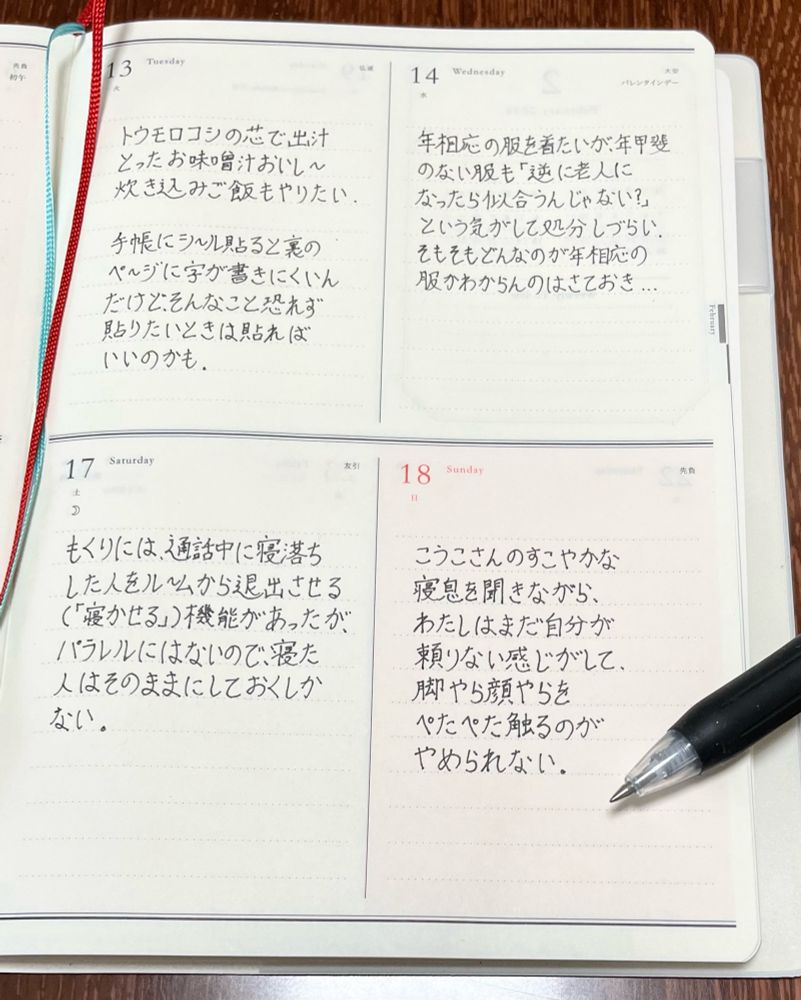 先負
初午
13
Tuesday
火
仏滅
トウモロコシの芯で出汁
とったお味噌汁おいし〜
炊き込みご飯もやりたい.
手帳にシール貼ると裏の
ページに字が書きにくいん
だけど、そんなこと恐れず
貼りたいときは貼れば
いいのかも.
14
Wednesday
水
大安
バレンタインデー
年相応の服を着たいが、年甲斐
のない服も「逆に老人に
なったら似合うんじゃない?」
という気がして処分しづらい.
そもそもどんなのが年相応の
服かわからんのはさておき…
February
17
Saturday
土
友引
もくりには、通話中に寝落ち
した人をルームから退出させる
(「寝かせる」)機能があったが、
パラレルにはないので、寝た
人はそのままにしておくしか
ない。
18
Sunday
日
先負
こうこさんのすこやかな
寝息を聞きながら、
わたしはまだ自分が
頼りない感じがして、
脚やら顔やらを
ぺたぺた触るのが
やめられない。